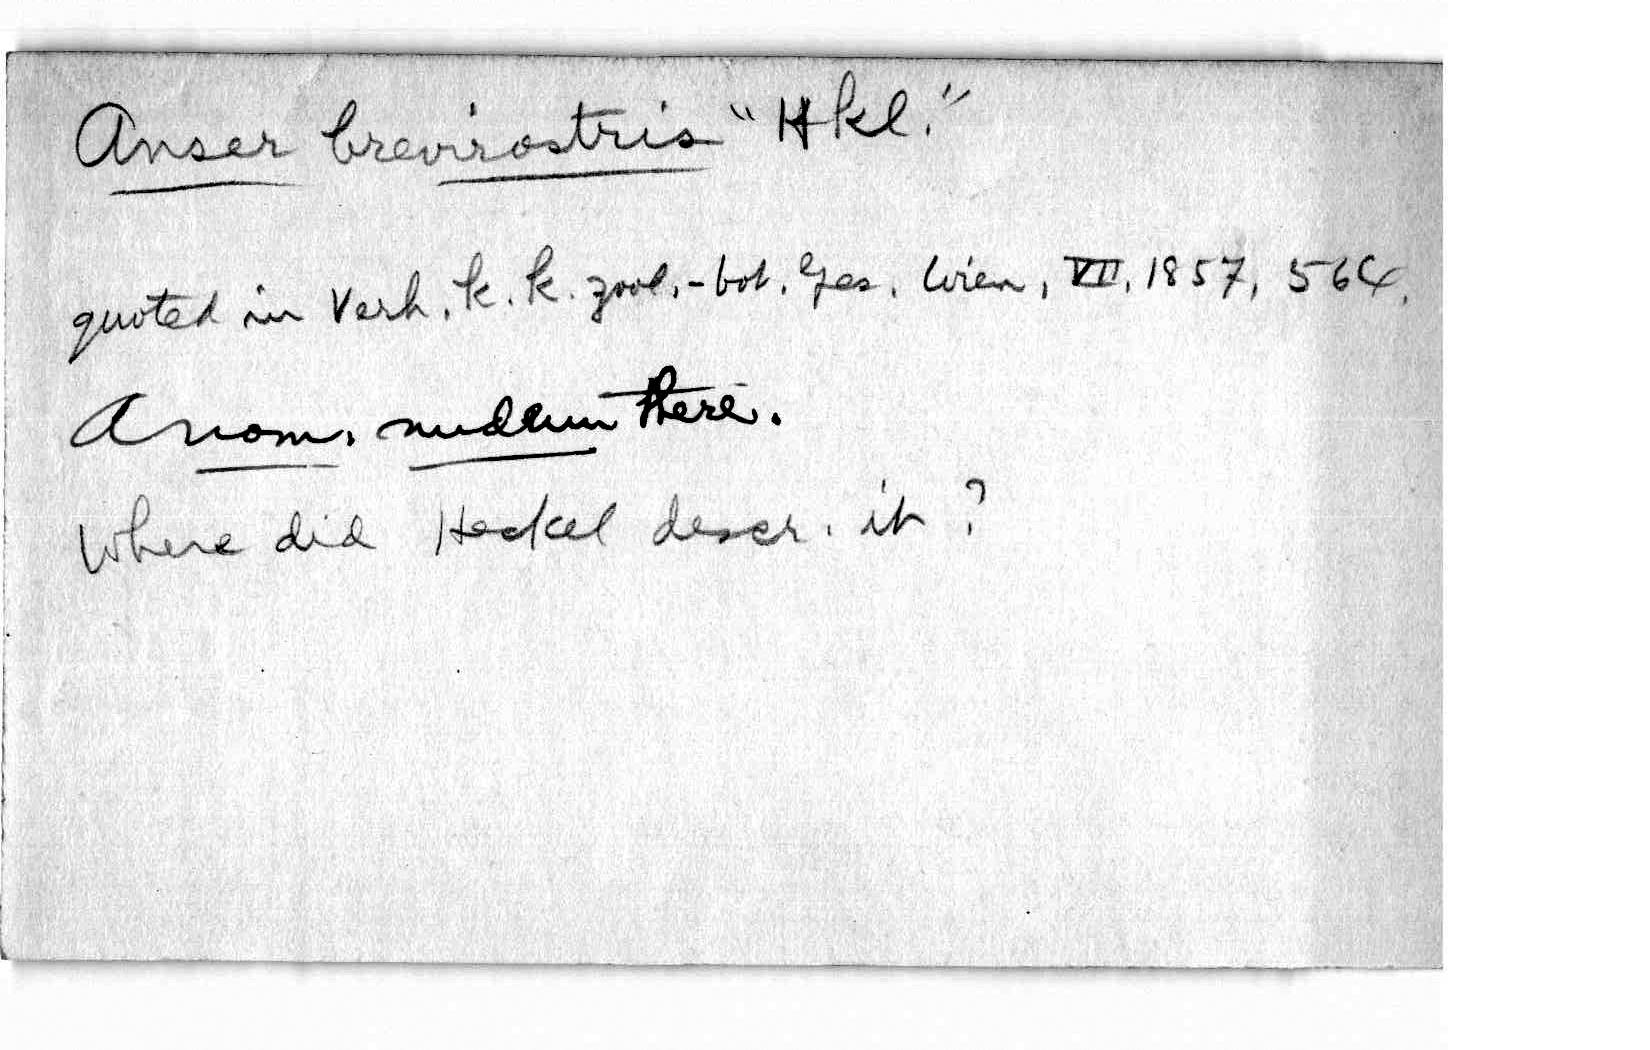 Anser brevirostris "Hkl."
quoted in Verh. k. k. zool.-bot. Ges. Wien, VII, 1857, 564.
A nom. nudum there.
Where did Heckel descr. it?